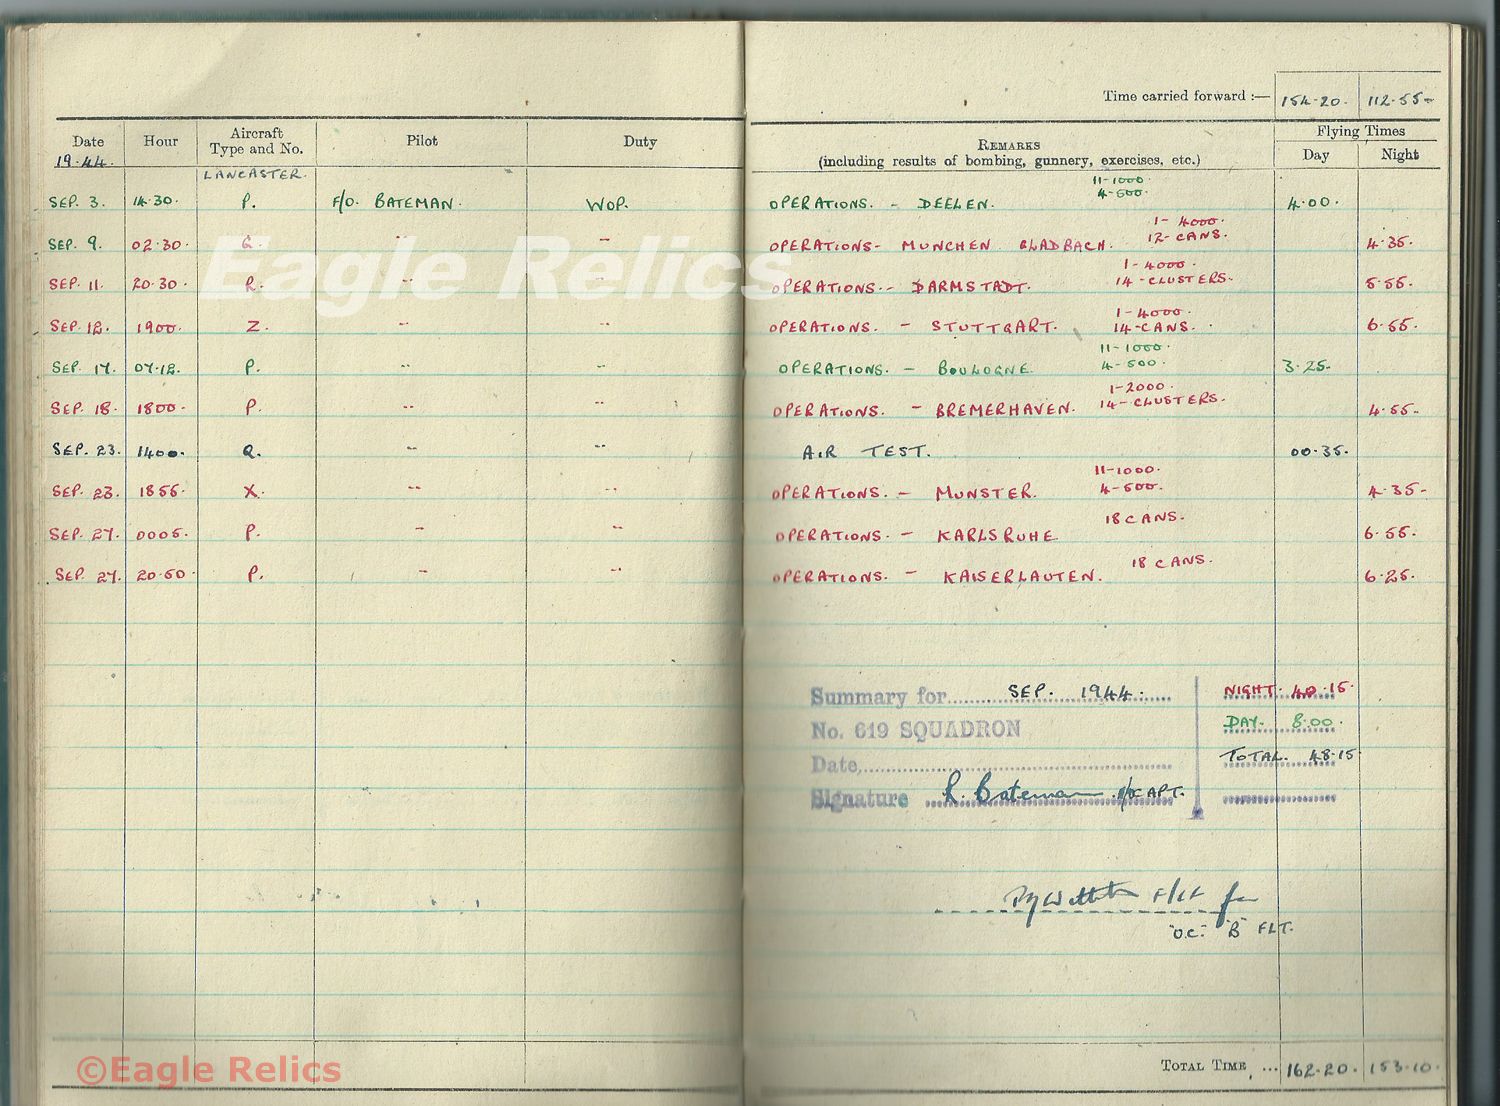 Time carried forward :— 154·20· 112·55-
Date Hour Aircraft Type and No. Pilot Duty REMARKS (including results of bombing, gunnery, exercises, etc.) Flying Times Day Night
19·44·
LANCASTER.
11-1000·
SEP. 3. 14·30· P. F/O. BATEMAN. WOP. OPERATIONS. - DEELEN. 4-500· 4·00·
1- 4000·
SEP. 9. 02·30· G. " " OPERATIONS- MUNCHEN GLADBACH. 12-CANS. 4·35·
1-4000·
SEP. 11. 20·30· R. " " OPERATIONS.- DARMSTADT. 14-CLUSTERS. 5·55·
1-4000·
SEP. 12. 1900· Z. " " OPERATIONS. - STUTTGART. 14-CANS. 6·55·
11-1000·
SEP. 17. 07·12. P. " " OPERATIONS. - BOULOGNE. 4-500· 3·25·
1-2000·
SEP. 18. 1800· P. " " OPERATIONS. - BREMERHAVEN. 14-CLUSTERS. 4·55-
SEP. 23. 1400. Q. " " AIR TEST. 00·35.
11-1000·
SEP. 23. 1855· X. " " OPERATIONS. - MUNSTER. 4-500· 4·35-
18 CANS.
SEP. 27. 0005· P. " " OPERATIONS. - KARLSRUHE 6·55·
18 CANS.
SEP. 27. 20·50· P. " " OPERATIONS. - KAISERLAUTEN. 6·25·
Eagle Relics
Summary for SEP. 1944. NIGHT. 40·15·
No. 619 SQUADRON DAY- 8·00·
Date TOTAL. 48·15
Signature R. Bateman F/O CAPT.
F/Lt for
"O.C." "B" FLT.
TOTAL TIME ... 162·20· 153·10·
©Eagle Relics